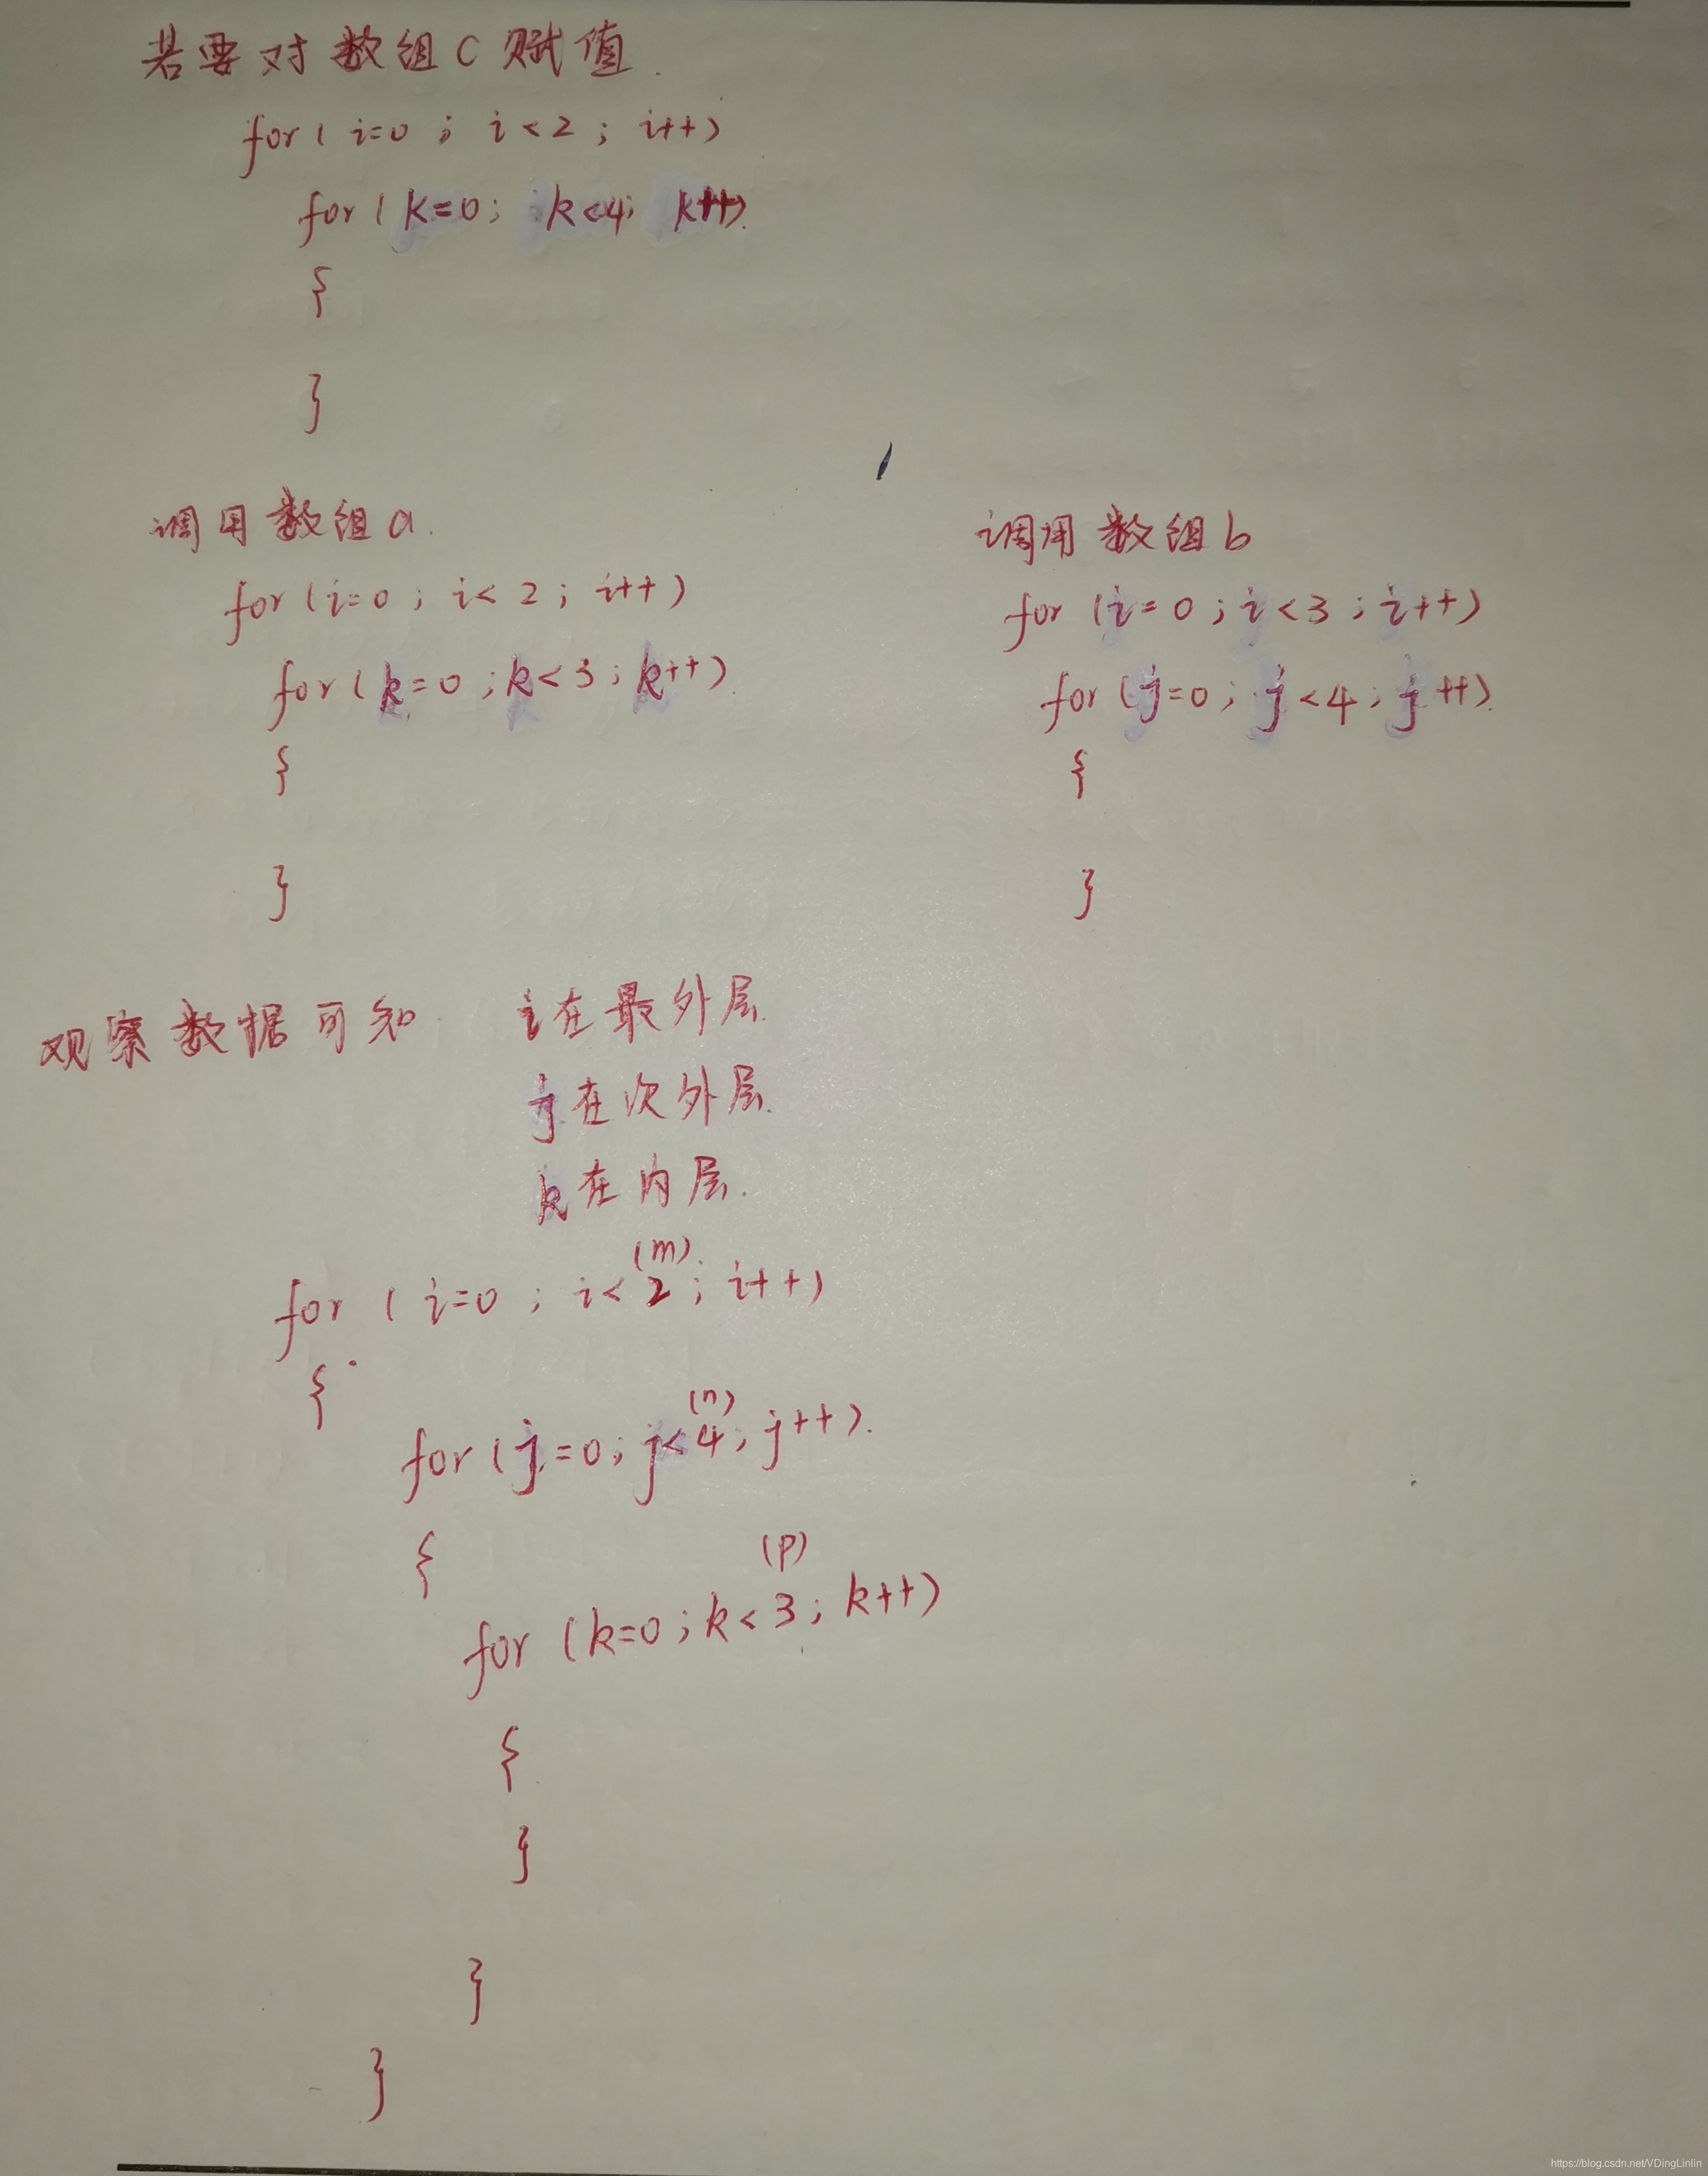 若要对数组C赋值.
for( i=0 ; i<2 ; i++)
for( k=0; k<4; k++).
{
}
调用数组a.
for(i=0 ; i<2 ; i++)
for(k=0 ; k<3 ; k++).
{
}
调用数组b
for (i=0 ; i<3 ; i++)
for(j=0; j<4; j++).
{
}
观察数据可知 i在最外层.
j在次外层.
k在内层.
(m)
for ( i=0 ; i<2 ; i++)
{
(n)
for (j=0; j<4; j++).
{
(p)
for (k=0; k<3; k++)
{
}
}
}
https://blog.csdn.net/VDingLinlin